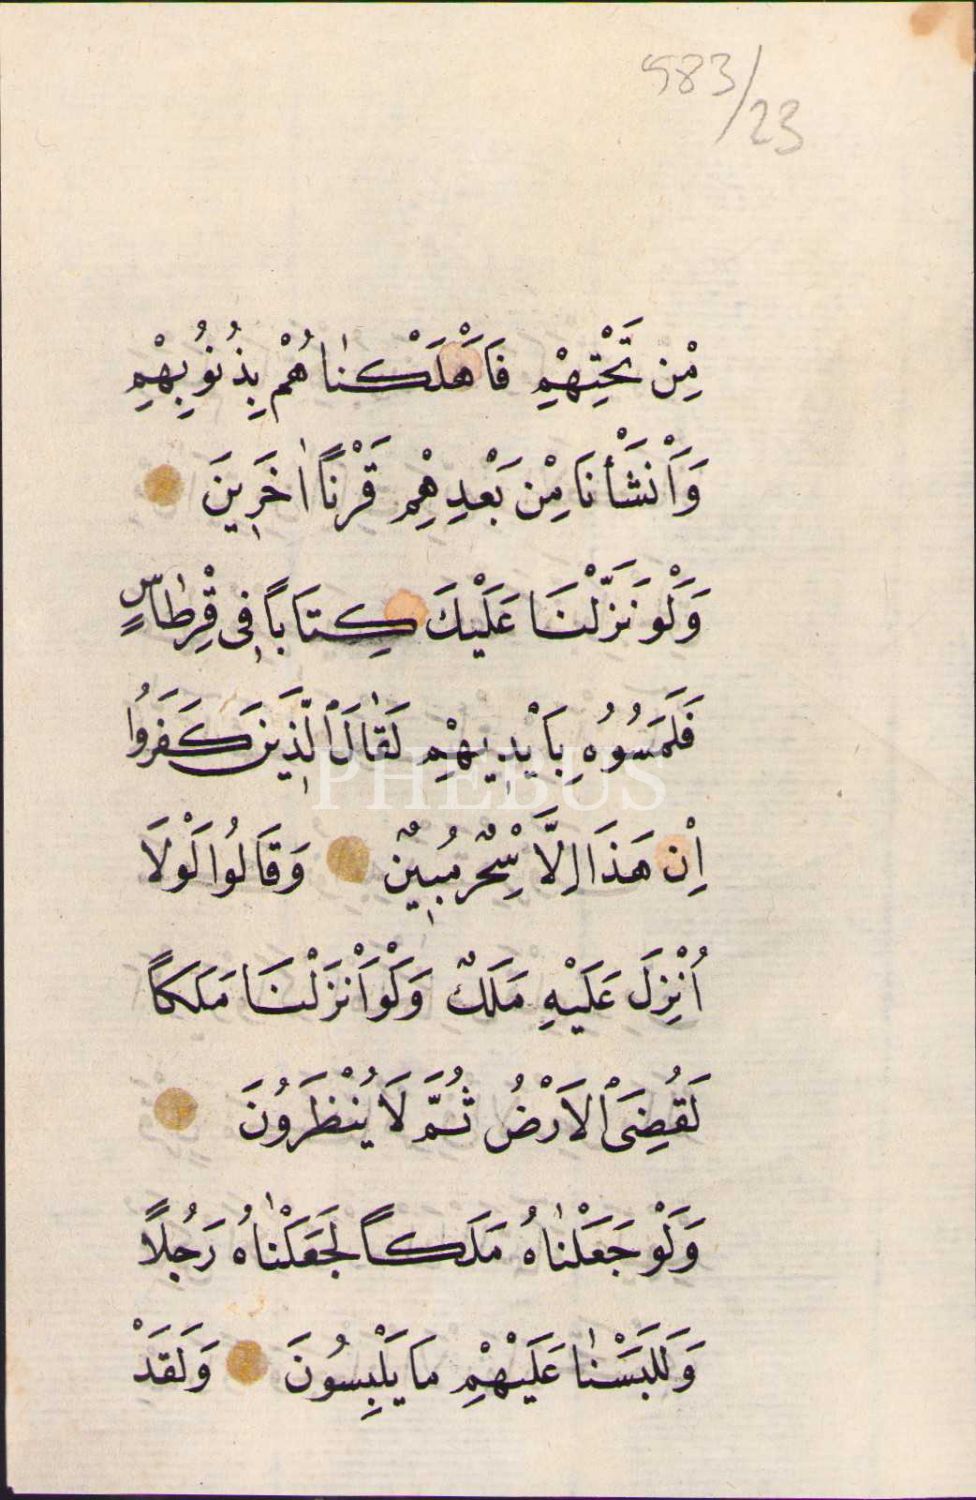 983/23
مِنْ تَحْتِهِمْ فَاَهْلَكْنٰاهُمْ بِذُنُوبِهِمْ
وَاَنْشَأْنَا مِنْ بَعْدِهِمْ قَرْنًا اٰخَرِينَ
وَلَوْ نَزَّلْنَا عَلَيْكَ كِتَابًا فِى قِرْطٰاسٍ
فَلَمَسُوُهُ بِاَيْدِيهِمْ لَقٰالَ الَّذِينَ كَفَرُوا
اِنْ هَذَا اِلَّا سِحْرٌ مُبِينٌ وَقَالُوا لَوْلَا
اُنْزِلَ عَلَيْهِ مَلَكٌ وَلَوْ اَنْزَلْنَا مَلَكًا
لَقُضِىَ الْاَرْضُ ثُمَّ لَا يُنْظَرُونَ
وَلَوْ جَعَلْنٰاهُ مَلَكًا لَجَعَلْنٰاهُ رَجُلًا
وَلَلَبَسْنٰا عَلَيْهِمْ مَا يَلْبِسُونَ وَلَقَدْ
PHEBUS